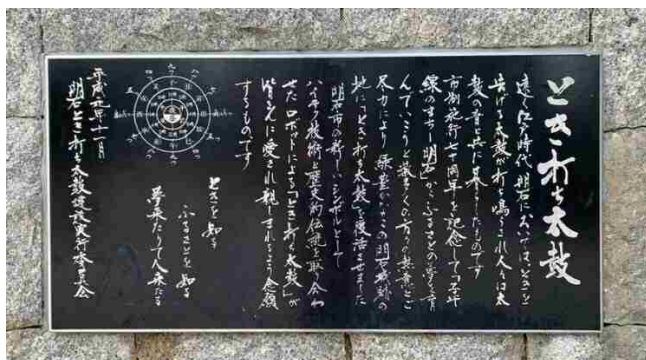 とき打ち太鼓
遠く江戸時代 明石においては、ときを
告げる太鼓が打ち鳴らされ人々は太
鼓の音と共に暮らしたものです
市制施行七十周年を記念して子午
線のまち明石から、ふるさとの
んでいこうと数多くの方々の熱意とご
尽力により 緑豊かなこの明石城跡の
地に「とき打ち太鼓」を復活させました
明石市の新しいシンボルとして
ハイテク技術と歴史的伝統を取り合わ
せたロボットによる「とき打ち太鼓」が
皆さんに愛され親しまれるよう念願
するものです
ときを知る
ふるさとを知る
夢来たりて人来たる
平成元年十一月
明石とき打ち太鼓建設実行委員会